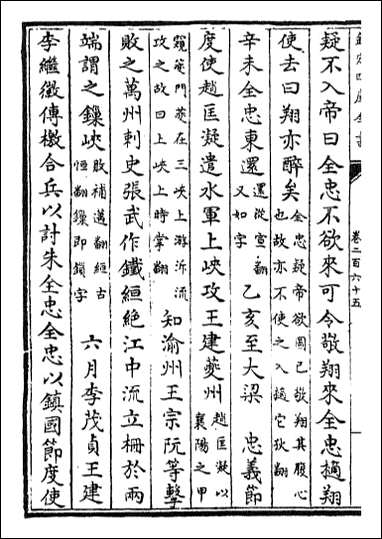 欽定四庫全書
卷二百六十五
疑不入帝曰全忠不欲來可令敬翔來全忠擿翔
使去曰翔亦醉矣全忠疑帝欲圖己敬翔其腹心
也故亦不使之入擿它狄翻
辛未全忠東還還從宣翻
又如字
乙亥至大梁 忠義節
度使趙匡凝遣水軍上峽攻王建夔州趙匡凝以
襄陽之甲
窺夔門夔在三峽上游泝流
攻之故曰上峽上時掌翻
知渝州王宗阮等擊
敗之萬州刺史張武作鐵絙絶江中流立柵於兩
端謂之鏁峽敗補邁翻絙古
恒翻鏁即鎖字
六月李茂貞王建
李繼徽傳檄合兵以討朱全忠全忠以鎮國節度使